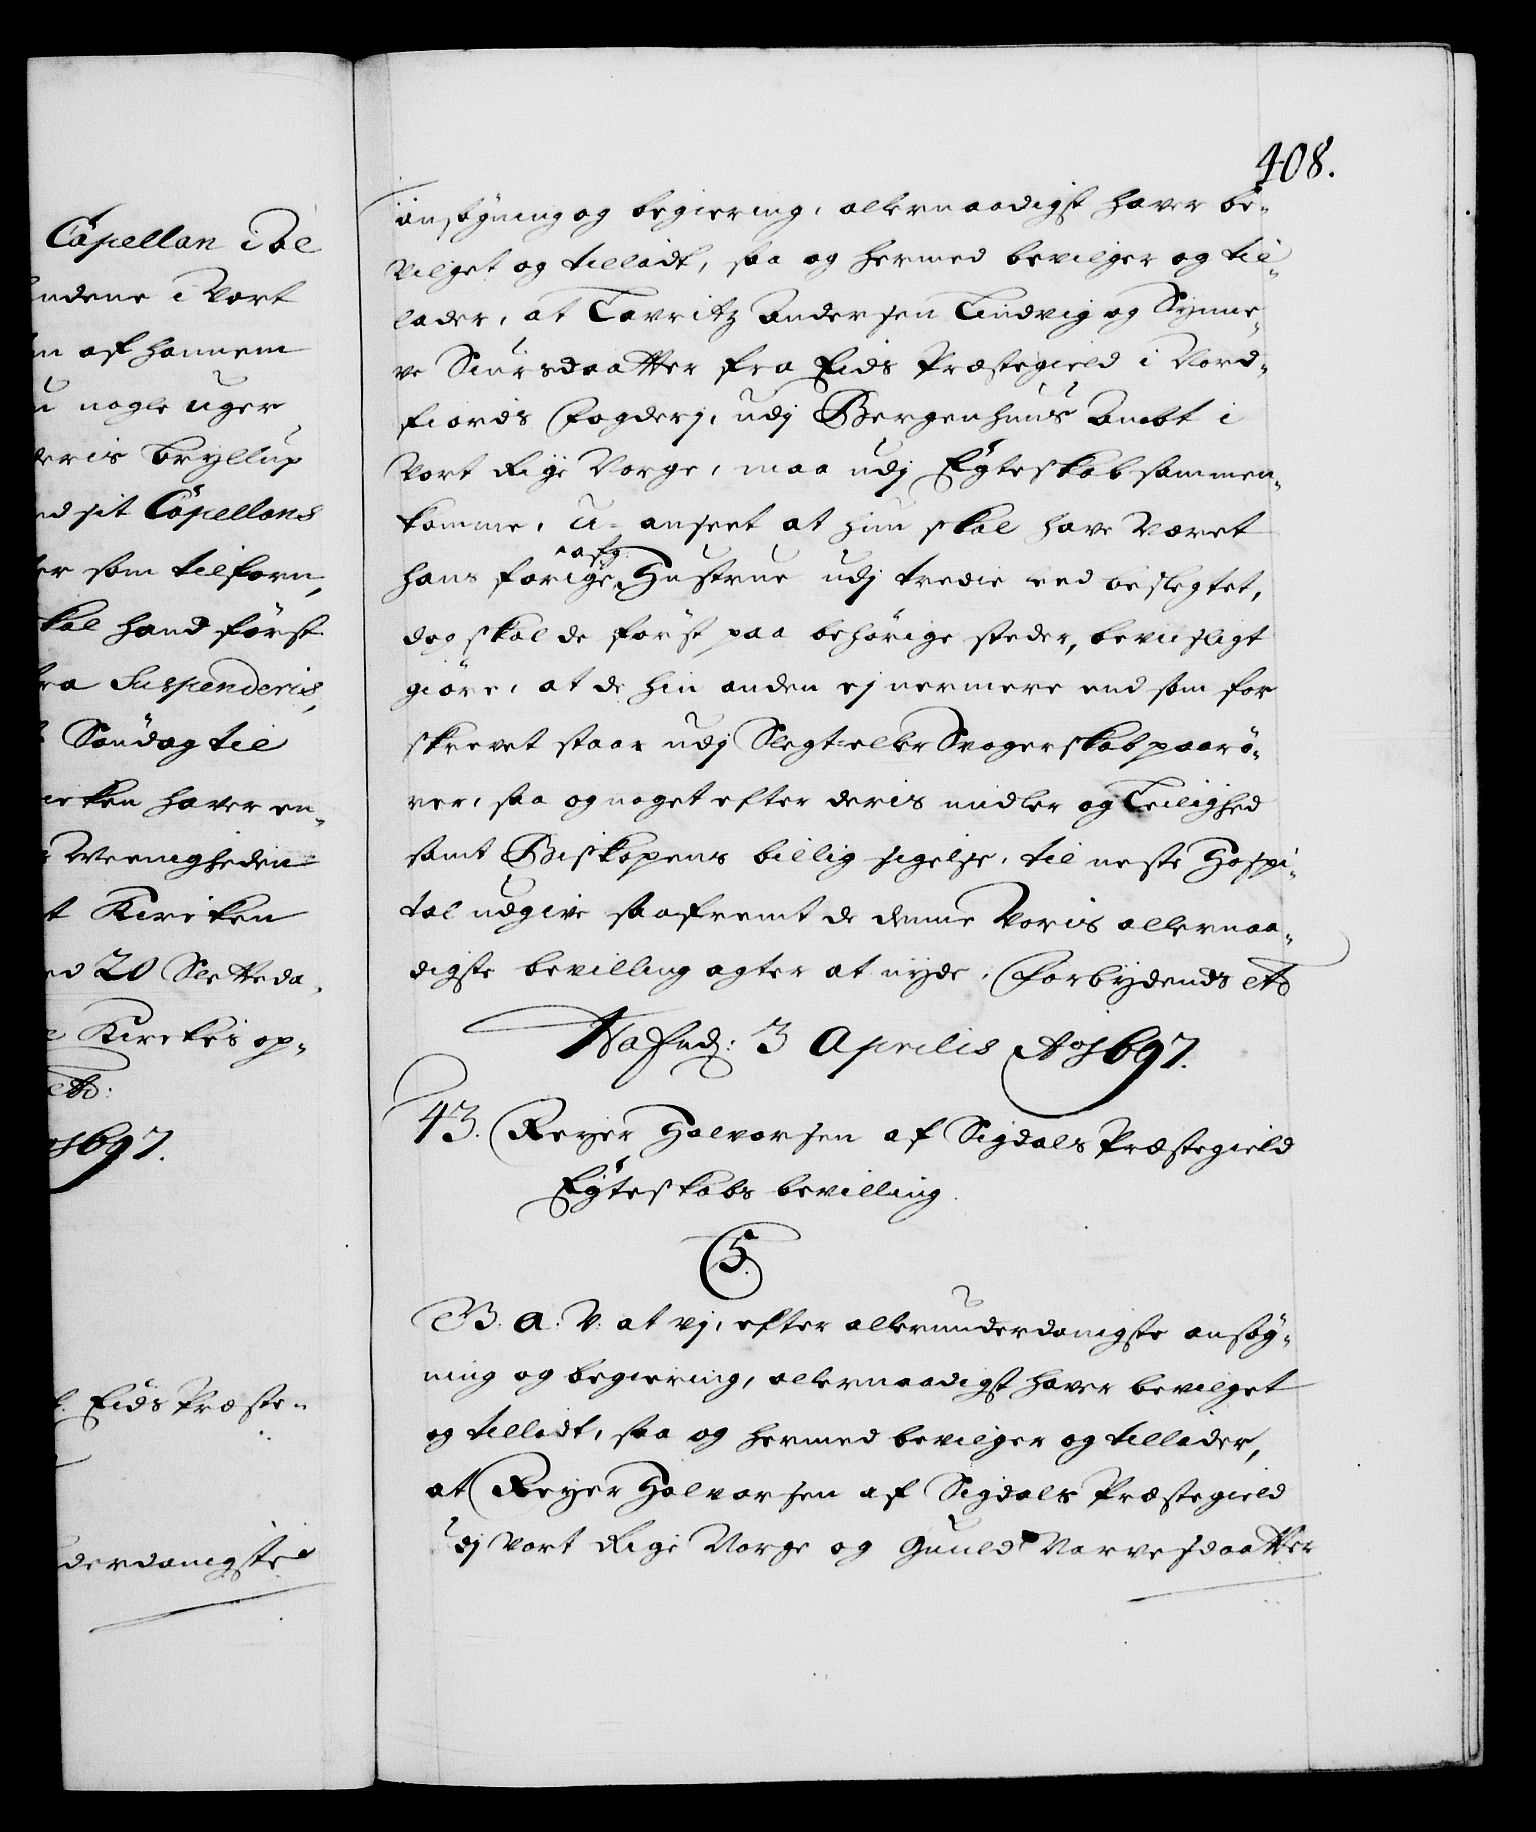 Capellan Poe
ndene i Vort
n af hannem
u nogle uger
deris bryllup
ed sit Capellans
er som tilforn,
kal hand först
ra Suspenderis,
Söndag til
irken haver en-
Weenigheden
t Kircken
ed 20 Slettеda-
e Kirckes op-
etc:
1697.
Eids Præste-
derdanigste
408.
ansögning og begiering, allernaadigst haver be-
vilget og tilladt, saa og hermed bevilger og til-
lader, at Lavritz Andersen Lindvig og Synne-
ve Siursdaatter fra Eids Præstegield i Nord-
fiords Fogderj, udj Bergenhuus Ambt i
Vort Rige Norge, maa udj Egteskab sammen-
komme, u-anseet at hun skal have Været
hans forige afg: Hustrue udj tredie leed beslegtet,
dog skal de först paa behörige steder, beviisligt
giöre, at de hin anden ej nermere end som for
skrevet staar udj Slegt eller Svogerskab paarö-
rer, saa og noget efter deris midler og Leilighed
samt Biskopens billig sigelse, til neste Hospi-
tal udgive saafremt de denne Voris allernaa-
digste bevilling agter at nyde. Forbydends etc
Hafnd: 3 Aprilis Ao 1697.
43. Reyer Halvorsen af Sigdals Præstegield
Egteskabs bevilling.
C5.
G. A. V. at vj, efter allerunderdanigste ansög-
ning og begiering, allernaadigst haver bevilget
og tilladt, saa og hermed bevilger og tillader,
at Reyer Halvorsen af Sigdals Præstegield
udj Vort Rige Norge og Guuld Narvesdaatter